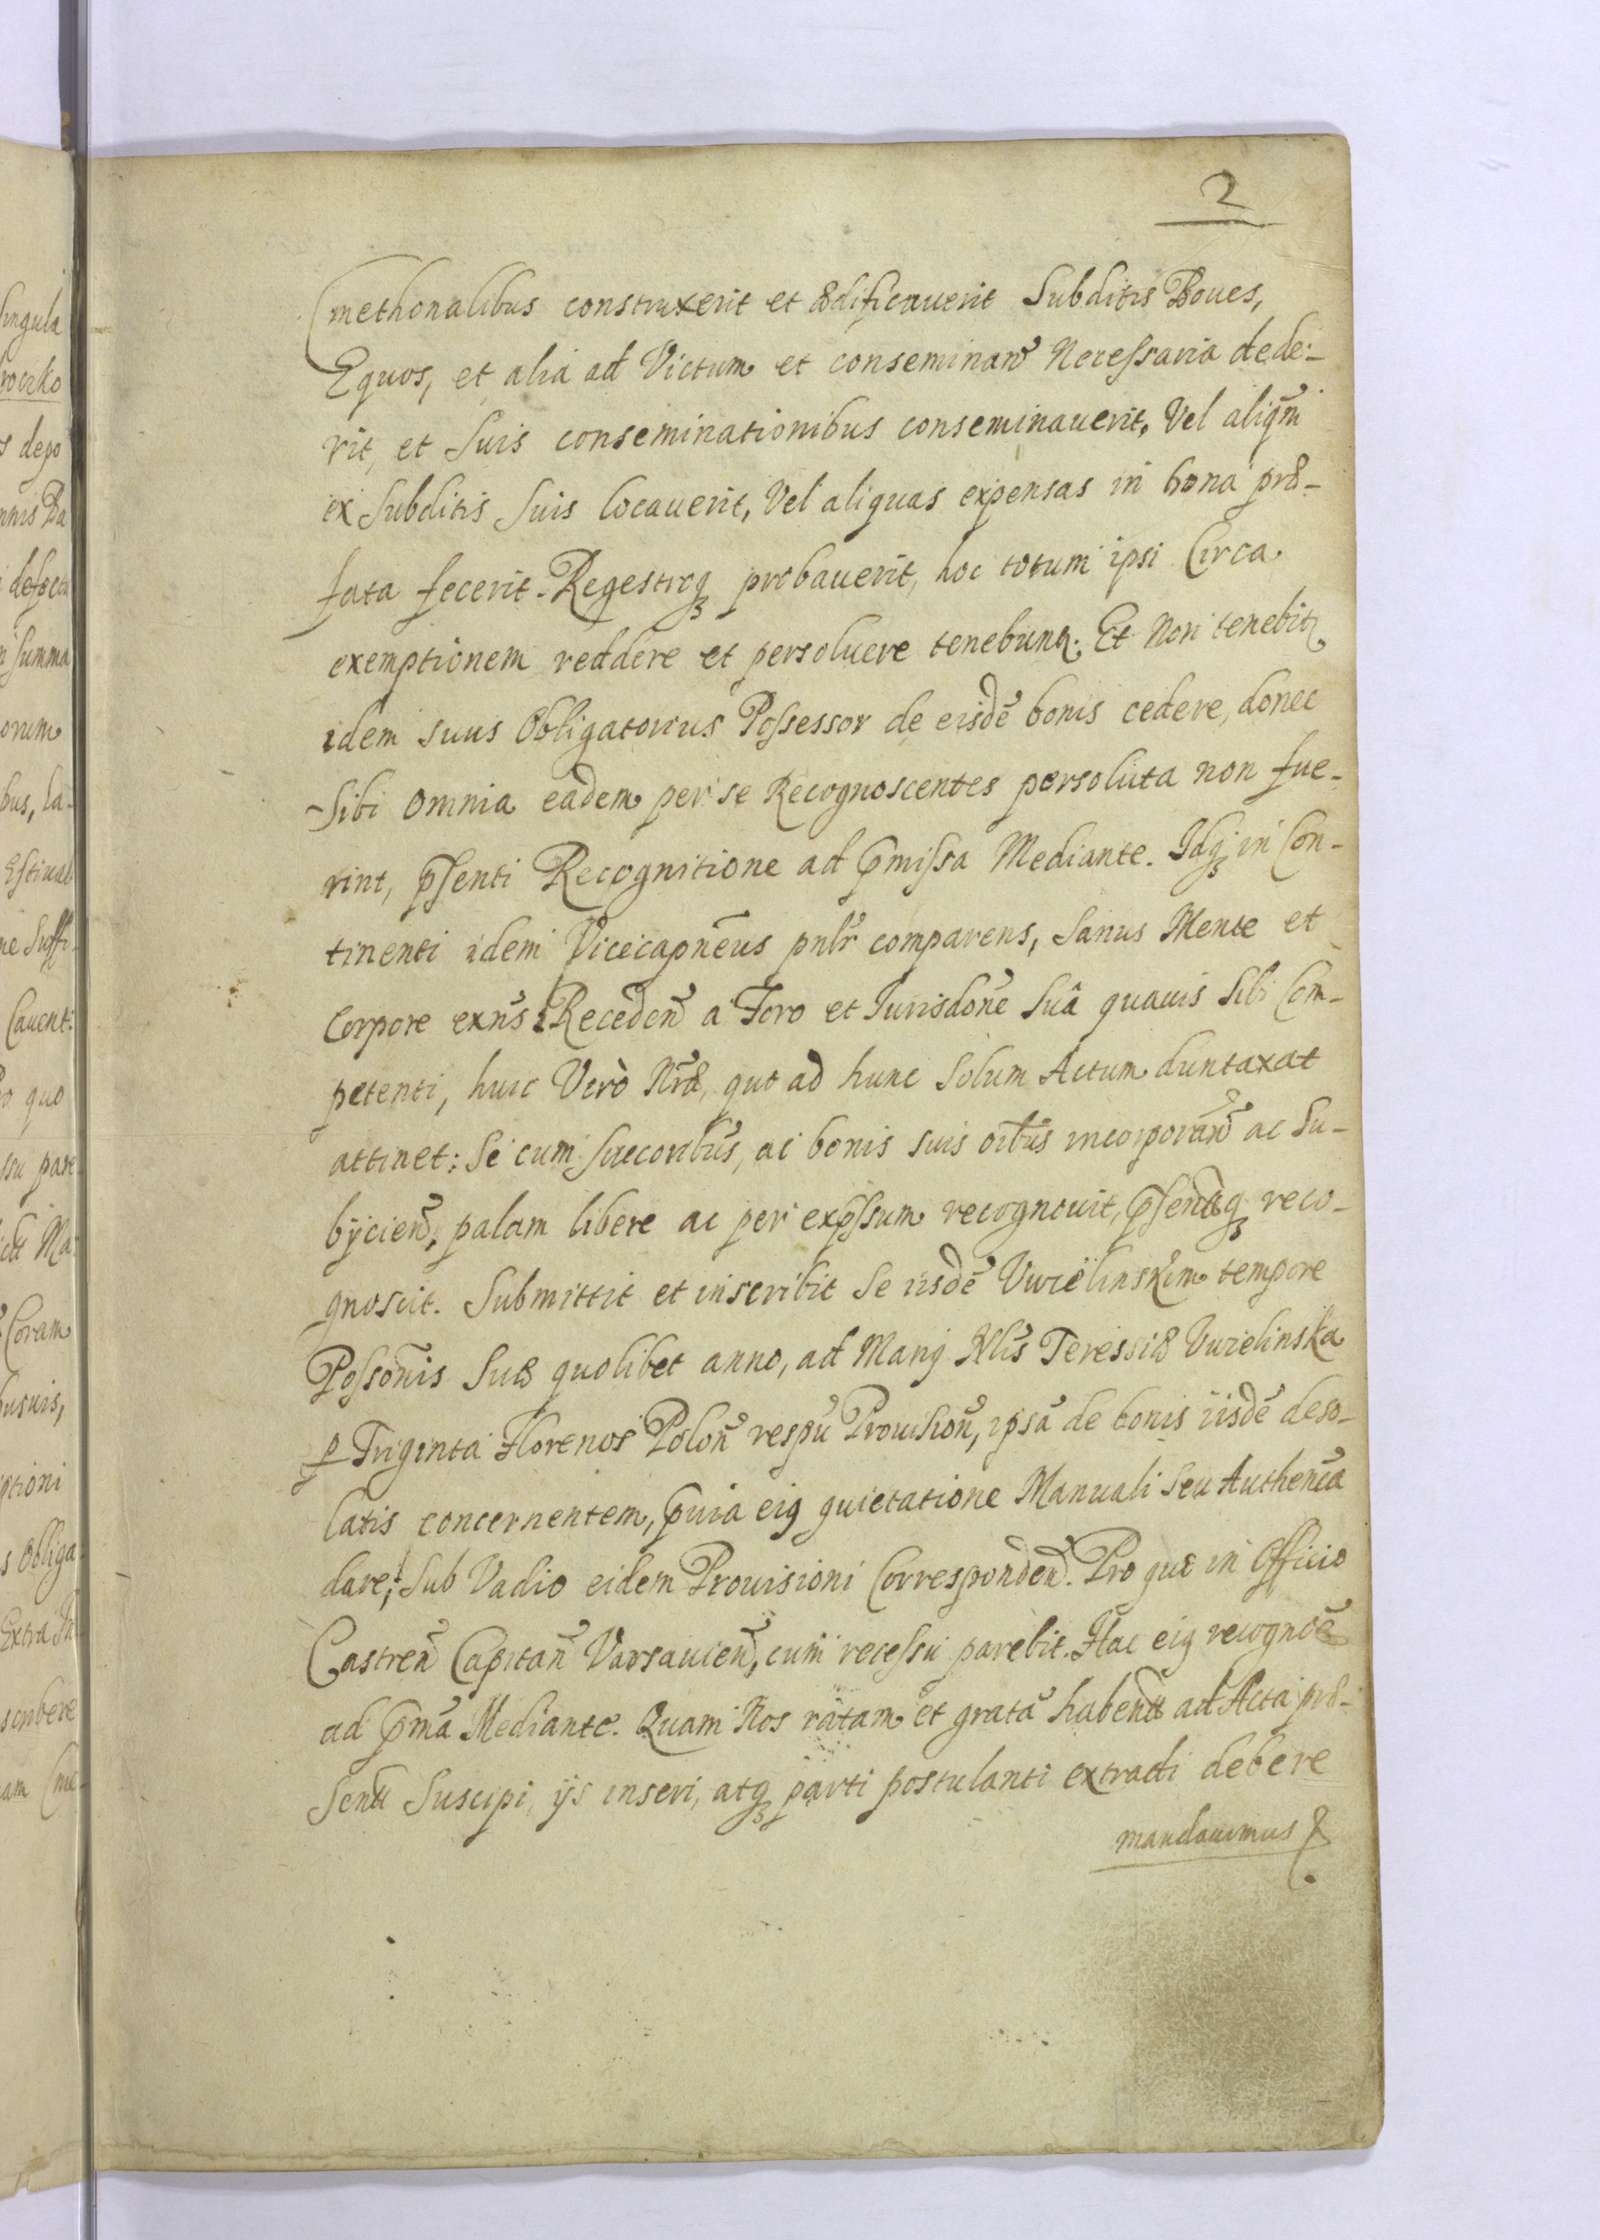 2
Cmethonalibus construxerit et ædificauerit Subditis Boues,
Equos, et alia ad Victum et conseminañ Necessaria dede-
rit, et Suis conseminationibus conseminauerit, Vel aliqm̃
ex Subditis Suis locauerit, Vel aliquas expensas in bona præ-
fata fecerit. Regestroq3 probauerit, hoc totum ipsi Circa
exemptionem reddere et persoluere tenebunt͛. Et Non tenebit͛
idem suus Obligatorius Possessor de eisdẽ bonis cedere, donec
Sibi omnia eadem per se Recognoscentes persoluta non fue-
rint, p̃senti Recognitione ad p̃missa Mediante. Idq3 in Con-
tinenti idem Vicecapñeus pnlr̃ comparens, Sanus Mente et
Corpore exñs Recedeñ a Foro et Iurisdone Suâ quauis Sibi Com-
petenti, huic Verò Nræ, qut ad hunc Solum Actum duntaxat
attinet: Se cum succoribus̃, ac bonis suis oibus̃ incorporañ ac Su-
bÿcieñ, palam libere ac per exp̃ssum recognouit, p̃sentiq3 reco-
gnoscit. Submittit et inscribit Se iisdẽ Vwielinskim tempore
Possonis̃ Suæ quolibet anno, ad Manq Nlis̃ Teressiæ Vwielinska
p Triginta Florenos Poloñ respũ Prouisioñ, ipsã de bonis iisdẽ deso-
latis concernentem, p̃uia eiq quietatione Manuali Seu Authenc̃a
dare, Sub Vadio eidem Prouisioni Correspondeñ. Pro quo in Officio
Castreñ Capitañ Varsauieñ, cum recessu parebit. Hac eiq recognõe
ad p̃mã Mediante. Quam Nos ratam et gratã habentt ad Acta præ-
sentt Suscipi, ijs inseri, atq3 parti postulanti extradi debere
mandauimus